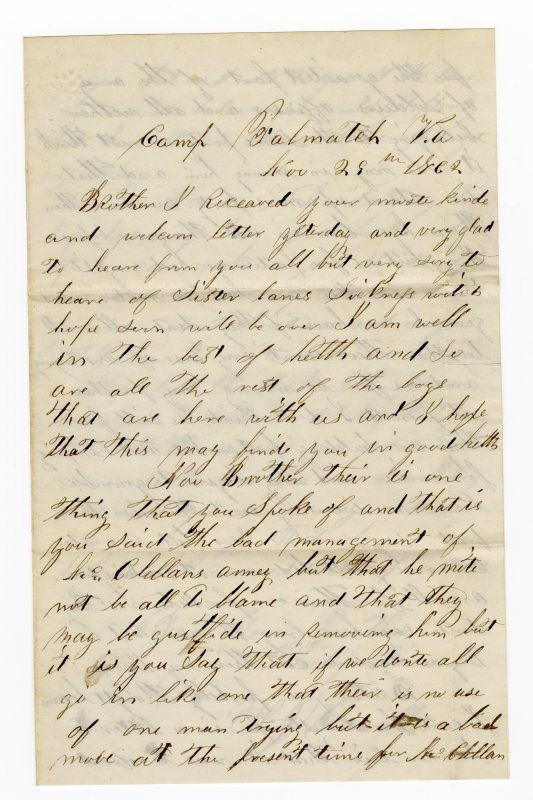 Camp Falmatch Va
Nov 29th 1862
Brother I receaved your moste kinde
and welcim letter yesterday and very glad
to heare from you all but very sory to
heare of Sister lanes Sickness witch
hope soon will be over I am well
in the best of helth and so
are all the rest of the boys
that are here with us and I hope
that this may finde you in good helth
Now Brother their is one
thing that you Spoke of and that is
you said the bad management of
Mc Clellans armey but that he mite
not be all to blame and that they
may be gustfide in removing him but
it is you Say that if we donte all
go in like one that their is no use
of one man trying but it is a bad
move at the present time for Mc Clellan